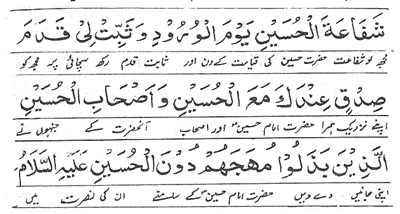 شَفَاعَةَ الْحُسَيْنِ يَوْمَ الْوُرُودِ وَثَبِّتْ لِي قَدَمَ
مجھ کو شفاعت حضرت حسین کی قیامت کے دن اور ثابت قدم رکھ سچائی پر مجھ کو
صِدْقٍ عِنْدَكَ مَعَ الْحُسَيْنِ وَاَصْحَابِ الْحُسَيْنِ
اپنے نزدیک ہمراہ حضرت امام حسین اور اصحاب آنحضرت کے جنہوں نے
الَّذِيْنَ بَذَلُوْا مُهَجَهُمْ دُوْنَ الْحُسَيْنِ عَلَيْهِ السَّلَامُ
اپنی جانیں دے دیں حضرت امام حسین کے سامنے ان کی نصرت میں